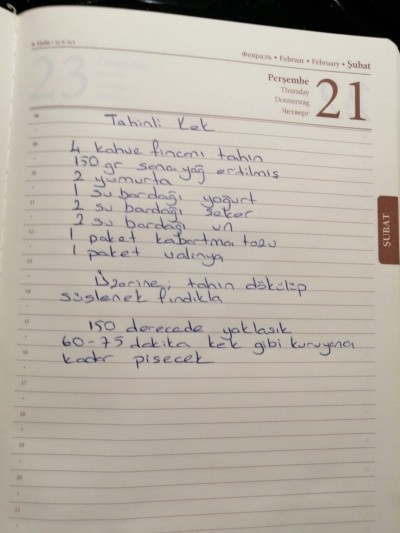 Февраль • Februar • February • Şubat
Perşembe
Thursday
Donnerstag
Четверг
21
ŞUBAT
Tahinli Kek
4 kahve fincanı tahin
150 gr sana yağ eritilmiş
2 yumurta
1 su bardağı yoğurt
2 su bardağı şeker
2 su bardağı un
1 paket kabartma tozu
1 paket valinya
Üzerine; tahin dökülüp
süslenek fındıkla
150 derecede yaklaşık
60-75 dakika kek gibi kuruyana
kadar pişecek